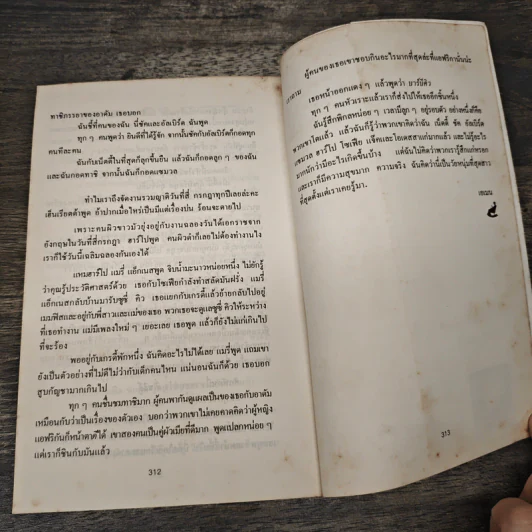 ทาชีภรรยาของอาดัม เธอบอก
ฉันชี้ที่คนของฉัน นี่ชักและอัลเบิร์ต ฉันพูด
ทุก ๆ คนพูดว่า ยินดีที่ได้รู้จัก จากนั้นชักกับอัลเบิร์ตก็กอดทุก
คนทีละคน
ฉันกับเน็ตตี้ในที่สุดก็ลุกขึ้นยืน แล้วฉันก็กอดลูก ๆ ของฉัน
และฉันกอดทาชี จากนั้นฉันก็กอดแซมวล
ทำไมเราถึงจัดงานรวมญาติวันที่สี่ กรกฎาทุกปีเลยล่ะคะ
เฮ็นเรียตต้าพูด ย้ำปากเมื่อไหร่เป็นมีแต่เรื่องบ่น ร้อนจะตายไป
เพราะคนผิวขาวมัวยุ่งอยู่กับงานฉลองวันได้เอกราชจาก
อังกฤษในวันที่สี่กรกฎา ฮาร์โปพูด คนผิวดำก็เลยไม่ต้องทำงานไง
เราก็ใช้วันนี้เฉลิมฉลองกันเองได้
แหมฮาร์โป แมรี่ แอ็กเนสพูด จิบน้ำมะนาวหน่อยหนึ่ง ไม่ยักรู้
ว่าคุณรู้ประวัติศาสตร์ด้วย เธอกับโซเฟียกำลังทำสลัดมันฝรั่ง แมรี่
แอ็กเนสกลับบ้านมารับซูซี่ คิว เธอแยกกับเกรดี้แล้วย้ายกลับไปอยู่
เมมฟิสและอยู่กับพี่สาวและแม่ของเธอ พวกเธอจะดูแลซูซี่ คิวให้ระหว่าง
ที่เธอทำงาน แม่มีเพลงใหม่ ๆ เยอะเลย เธอพูด แล้วก็ยังไม่แก่เกินที่
จะร้อง
พออยู่กับเกรดี้พักหนึ่ง ฉันคิดอะไรไม่ได้เลย แมรี่พูด แถมเขา
ยังเป็นตัวอย่างที่ไม่ดีไม่ว่ากับเด็กคนไหน แน่นอนฉันก็ด้วย เธอบอก
สูบกัญชามากเกินไป
ทุก ๆ คนชื่นชมทาชีมาก ผู้คนพากันดูแผลเป็นของเธอกับอาดัม
เหมือนกับว่าเป็นเรื่องของตัวเอง บอกว่าพวกเขาไม่เคยคาดคิดว่าผู้หญิง
แอฟริกันก็หน้าตาดีได้ เขาสองคนเป็นคู่ผัวเมียที่ดีมาก พูดแปลกหน่อย ๆ
แต่เราก็ชินกับมันแล้ว
312
ผู้คนของเธอเขาชอบกินอะไรมากที่สุดล่ะที่แอฟริกานั่นน่ะ
เราถาม
เธอหน้าออกแดง ๆ แล้วพูดว่า บาร์บีคิว
ทุก ๆ คนหัวเราะแล้วเราก็ส่งไปให้เธออีกชิ้นหนึ่ง
ฉันรู้สึกพิกลหน่อย ๆ เวลามีลูก ๆ อยู่รอบตัว อย่างหนึ่งก็คือ
พวกเขาโตแล้ว แล้วฉันก็รู้ว่าพวกเขาคิดว่าฉัน เน็ตตี้ ชัก อัลเบิร์ต
แซมวล ฮาร์โป โซเฟีย แจ็คและโอเดสสาแก่มากแล้ว และไม่รู้อะไร
มากนักว่ามีอะไรเกิดขึ้นบ้าง แต่ฉันไม่คิดว่าพวกเรารู้สึกแก่หรอก
และเราก็มีความสุขมาก ความจริง ฉันคิดว่านี่เป็นวัยหนุ่มที่สุดสาว
ที่สุดตั้งแต่เราเคยรู้มา
เอเมน
313